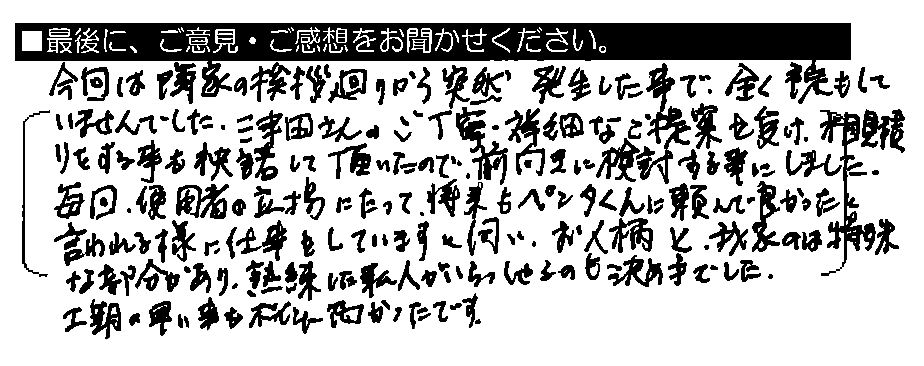 ■最後に、ご意見・ご感想をお聞かせください。
今回は隣家の挨拶廻りから突然発生した事で、全く予定もして
いませんでした。三津田さんのご丁寧・詳細なご提案を受け、相見積
りをする事も快諾して頂いたので、前向きに検討する事にしました。
毎回、使用者の立場にたって、将来もペンタくんに頼んで良かったと
言われる様に仕事をしていますと伺い、お人柄と、我家のは特殊
な部分があり、熟練した職人がいらっしゃるのも決め手でした。
工期の早い事もポイント高かったです。